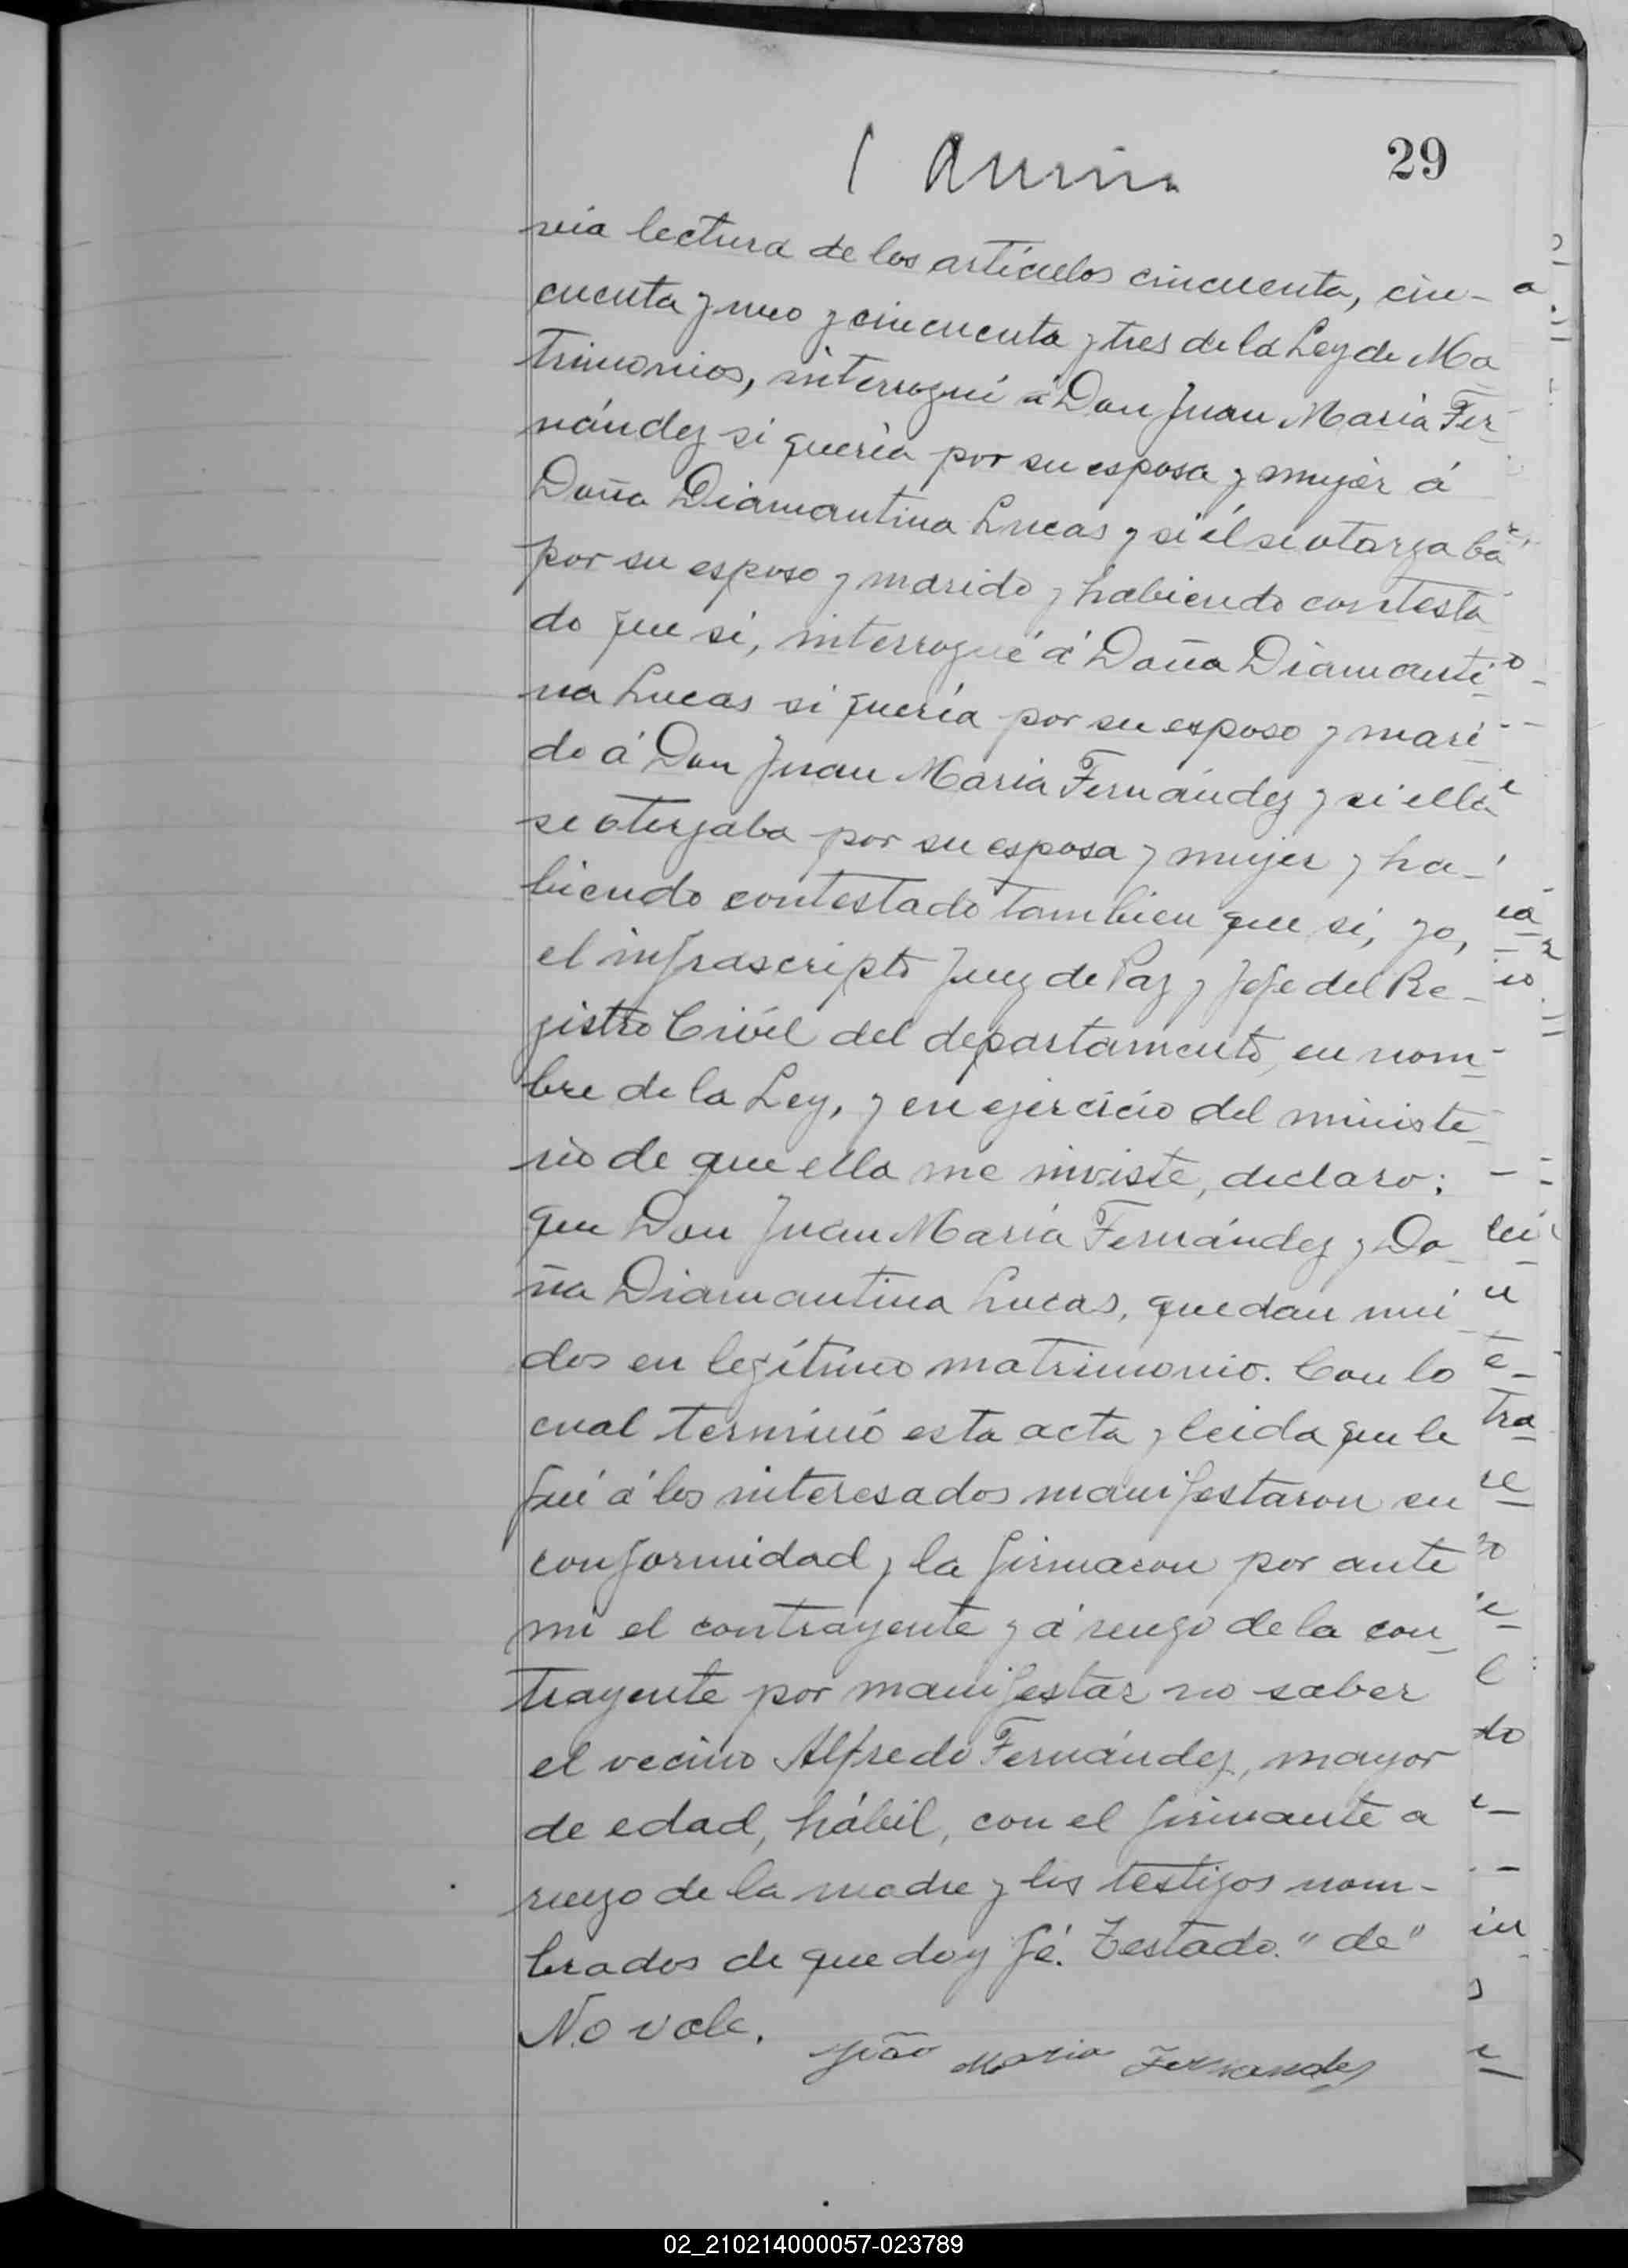 29
via lectura de los artículos cincuenta, cin-
cuenta y uno y cincuenta y tres de la Ley de Ma
trimonios, interrogué á Don Juan Maria Fer-
nández si quería por su esposa y mujer á
Doña Diamantina Lucas y si él se otorgaba
por su esposo y marido y habiendo contesta
do que si, interrogué á Doña Diamanti
na Lucas si quería por su esposo y mari
do á Don Juan Maria Fernández y si ella
se otorgaba por su esposa y mujer y ha-
biendo contestado tambien que si, yo,
el infrascripto Juez de Paz y Jefe del Re-
gistro Civil del departamento, en nom-
bre de la Ley, y en ejercicio del ministe
rio de que ella me inviste, declaro:
que Don Juan Maria Fernández y Do-
ña Diamantina Lucas, quedan uni
dos en legítimo matrimonio. Con lo
cual terminó esta acta y leida que le
fué á los interesados manifestaron su
conformidad y la firmaron por ante
mi el contrayente y á ruego de la con_
trayente por manifestar no saber
el vecino Alfredo Fernández, mayor
de edad, hábil, con el firmante a
ruego de la madre y los testigos nom-
brados de que doy fé. Testado. "de"
No vale.
João Maria Fernandes
02_210214000057-023789